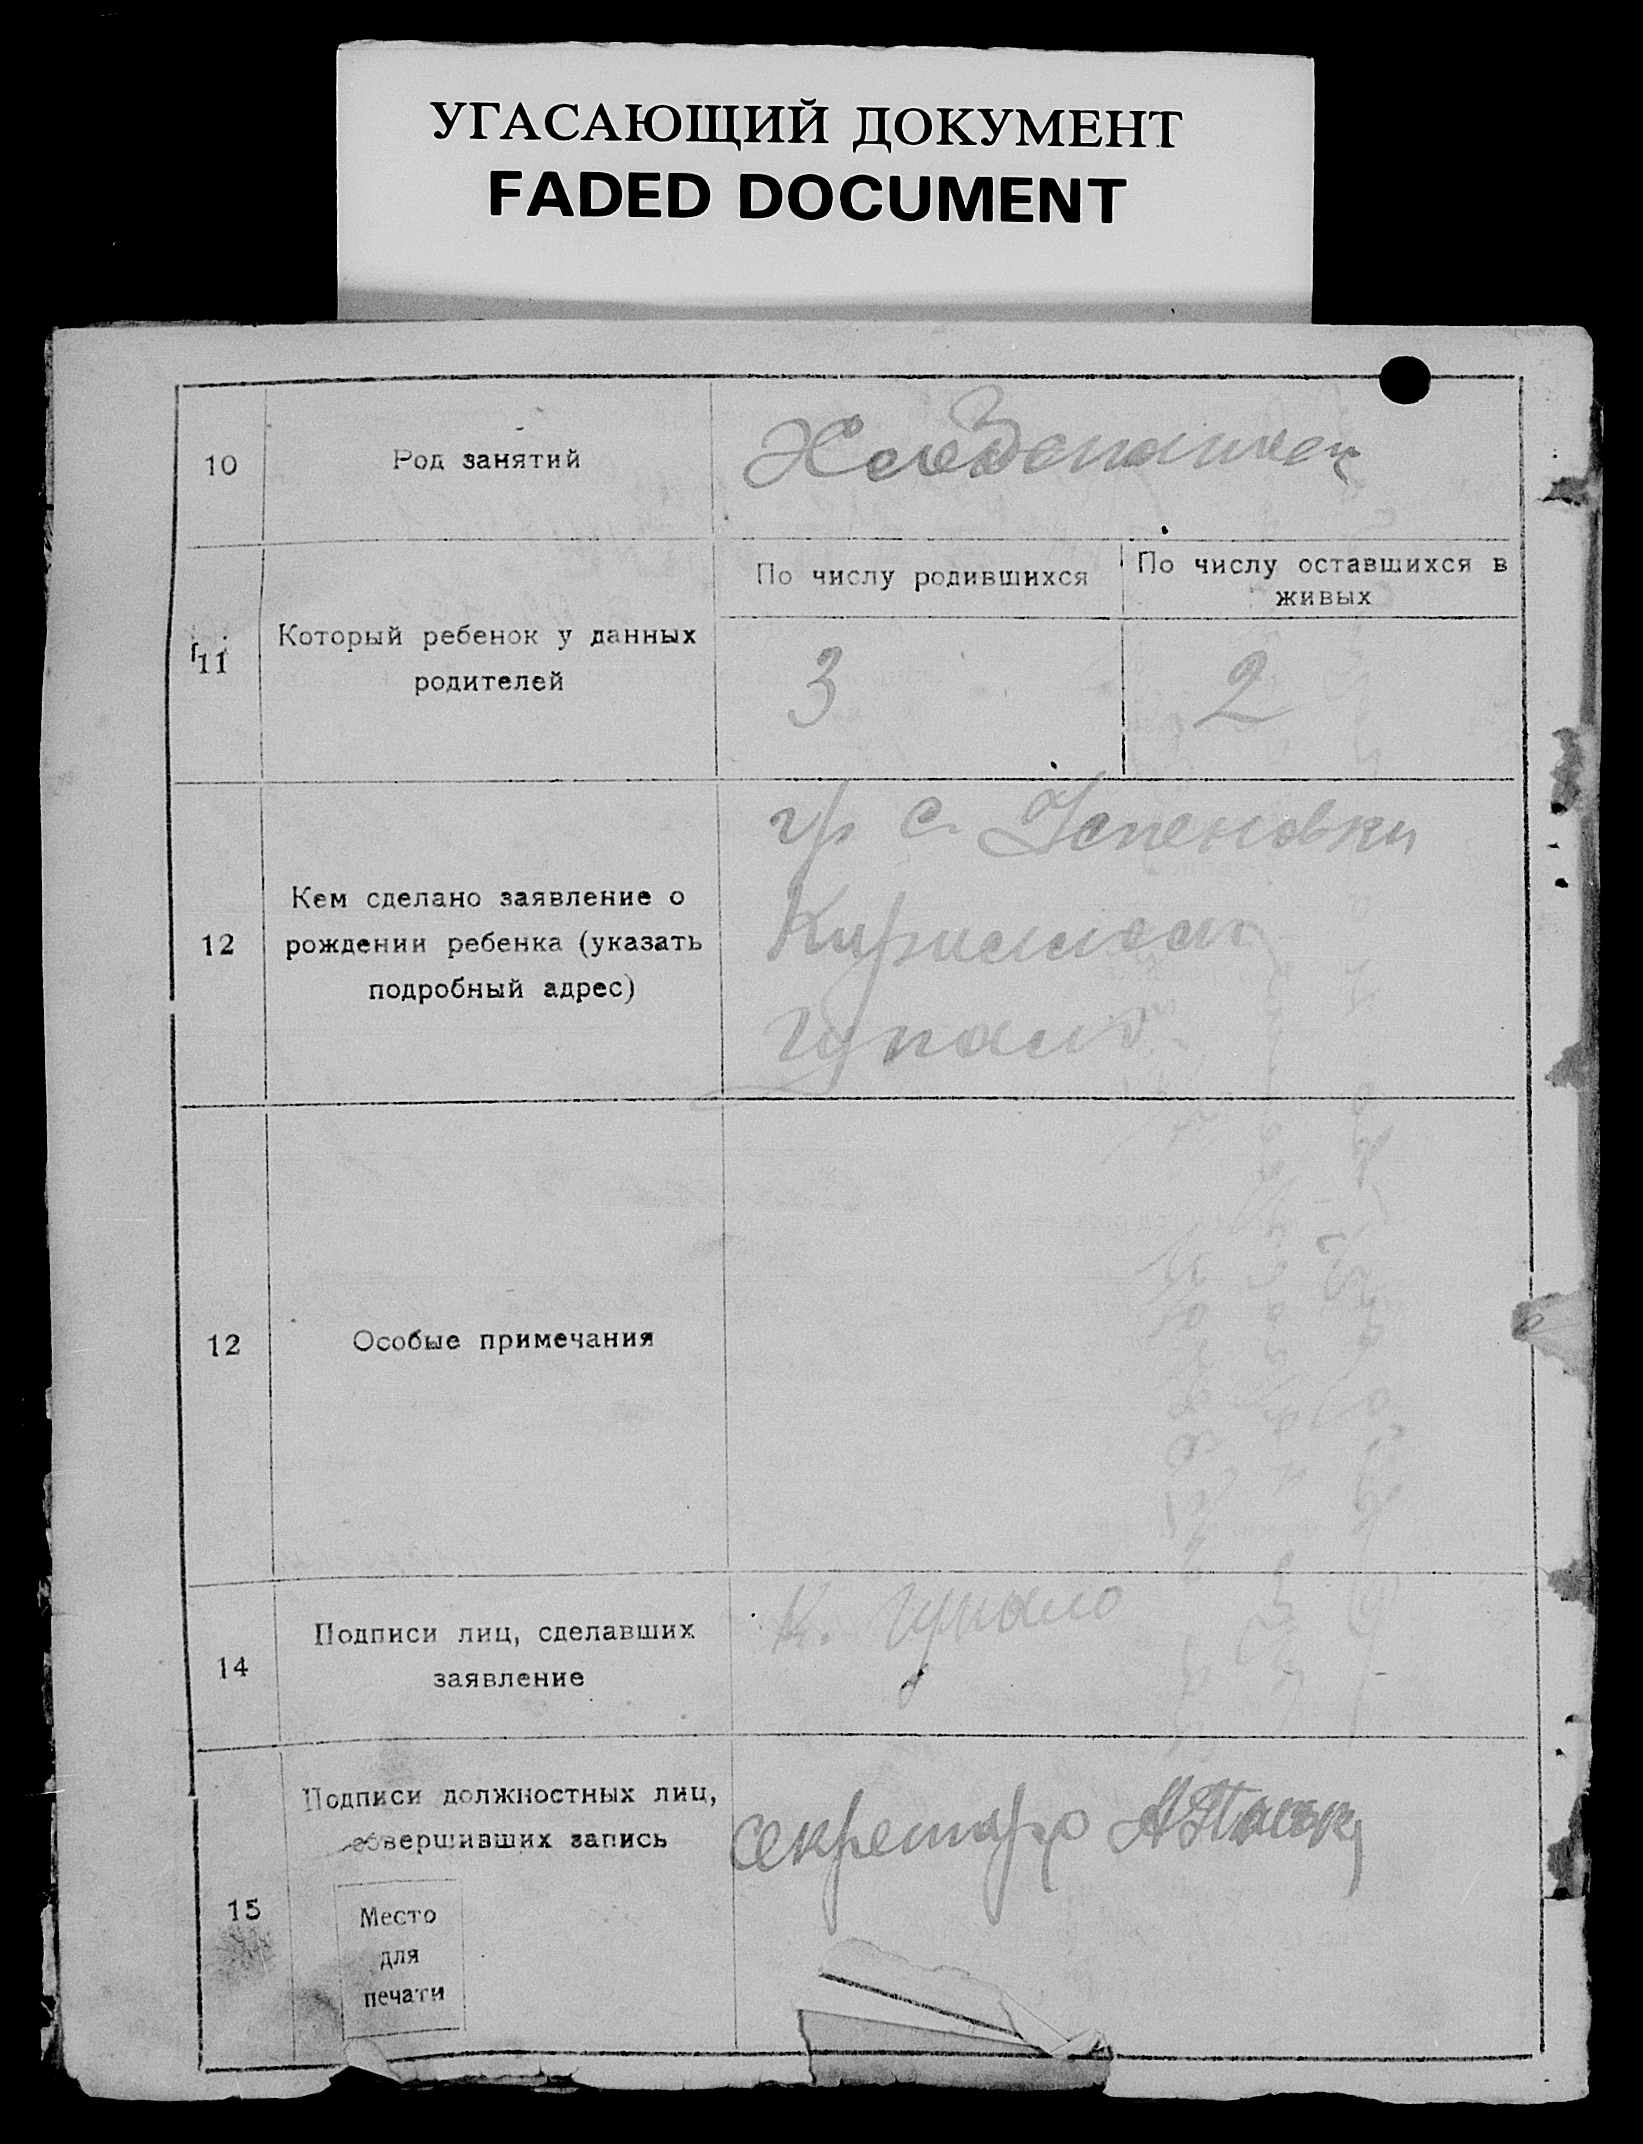 УГАСАЮЩИЙ ДОКУМЕНТ
FADED DOCUMENT
10
Род занятий
Хлебопашец
11
Который ребенок у данных
родителей
По числу родившихся
По числу оставшихся в
живых
3
2
12
Кем сделано заявление о
рождении ребенка (указать
подробный адрес)
гр. с. Успеновки
Кириллом
Цупало
12
Особые примечания
14
Подписи лиц, сделавших
заявление
К. Цупало
15
Подписи должностных лиц,
совершивших запись
Место
для
печати
секретарь